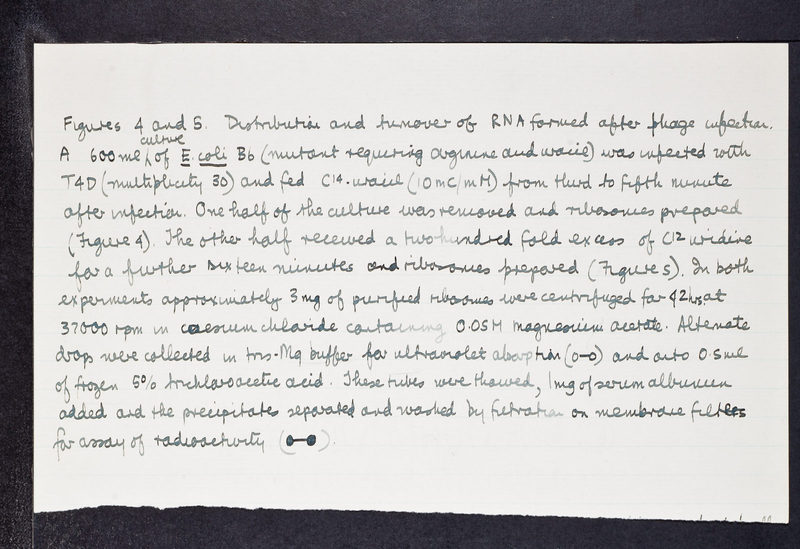 Figures 4 and 5. Distribution and turnover of RNA formed after phage infection.
culture
A 600 ml of E. coli B6 (mutant requiring arginine and uracil) was infected with
T4D (multiplicity 30) and fed C14-uracil (10 mC/mM) from third to fifth minute
after infection. One half of the culture was removed and ribosomes prepared
(Figure 4). The other half received a two hundred fold excess of C12 uridine
for a further sixteen minutes and ribosomes prepared (Figure 5). In both
experiments approximately 3 mg of purified ribosomes were centrifuged for 42 hrs at
37000 rpm in caesium chloride containing 0.05M magnesium acetate. Alternate
drops were collected in tris-Mg buffer for ultraviolet absorption (o-o) and onto 0.5 ml
of frozen 5% trichloroacetic acid. These tubes were thawed, 1 mg of serum albumin
added and the precipitates separated and washed by filtration on membrane filters
for assay of radioactivity (●-●).